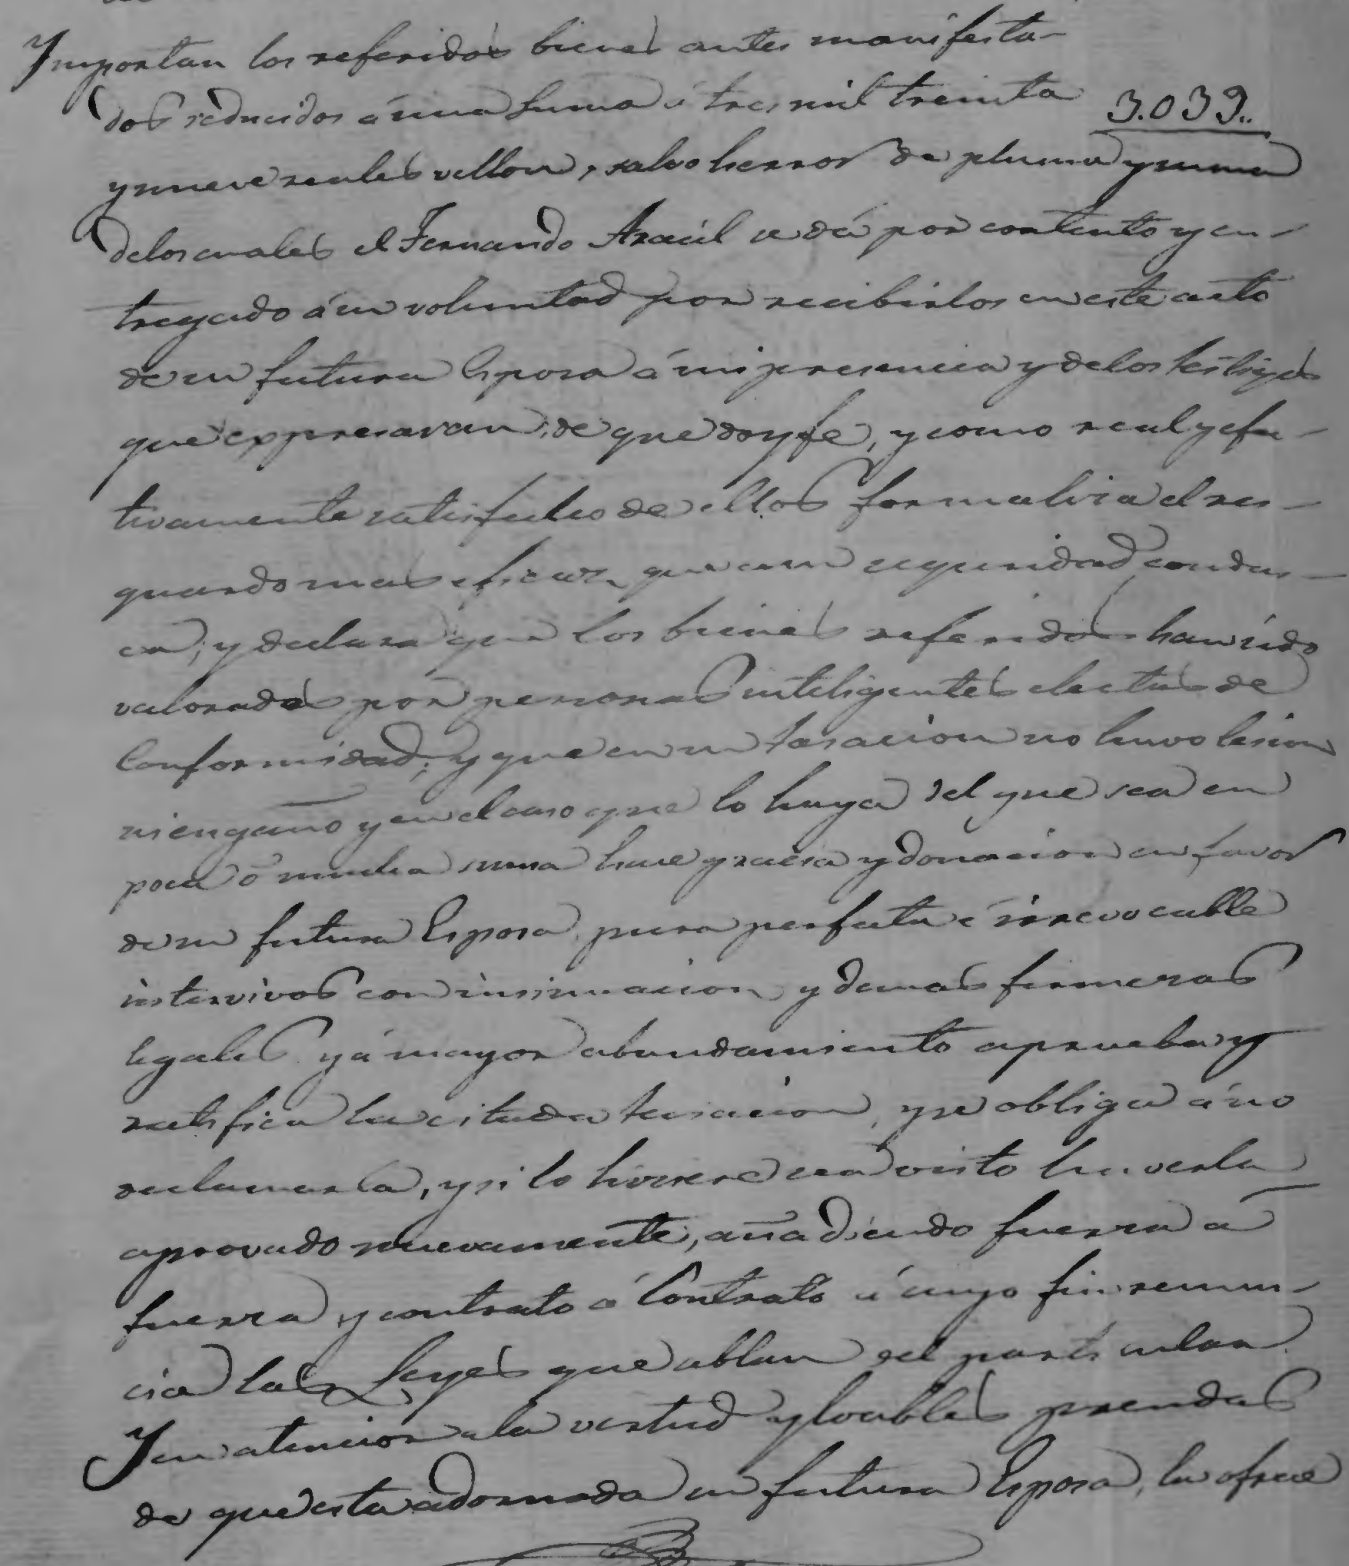 Importan los referidos bienes antes manifesta-
dos reducidos á una suma á tres mil treinta 3.039..
y nueve reales vellon, salvo herror de pluma y suma
de los cuales el Fernando Aracil se dá por contento y en-
tregado á su voluntad por recibirlos en este acto
de su futura Esposa á mi presencia y de los testigos
que expresaran, de que doy fe, y como real y efec-
tivamente satisfecho de ellos formaliza el res-
guardo mas eficaz que a su seguridad conduz-
ca; y declara que los bienes referidos han sido
valorados por personas inteligentes electas de
Conformidad; y que en su tasacion no huvo lesion
ni engaño y en el caso que lo haya del que sea en
poca ó mucha suma hace gracia y donacion en favor
de su futura Esposa, pura perfecta é irrevocable
intervivos con insinuacion y demas firmezas
legales y á mayor abundamiento aprueba y
ratifica la citada tasacion, y se obliga á no
reclamarla, y si lo hiciere sea visto haverla
aprovado nuevamente, añadiendo fuerza á
fuerza y contrato á Contrato á cuyo fin renun-
cia las Leyes que ablan del particular.
Y en atencion a la virtud y loables prendas
de que esta adornada su futura Esposa, la ofrece